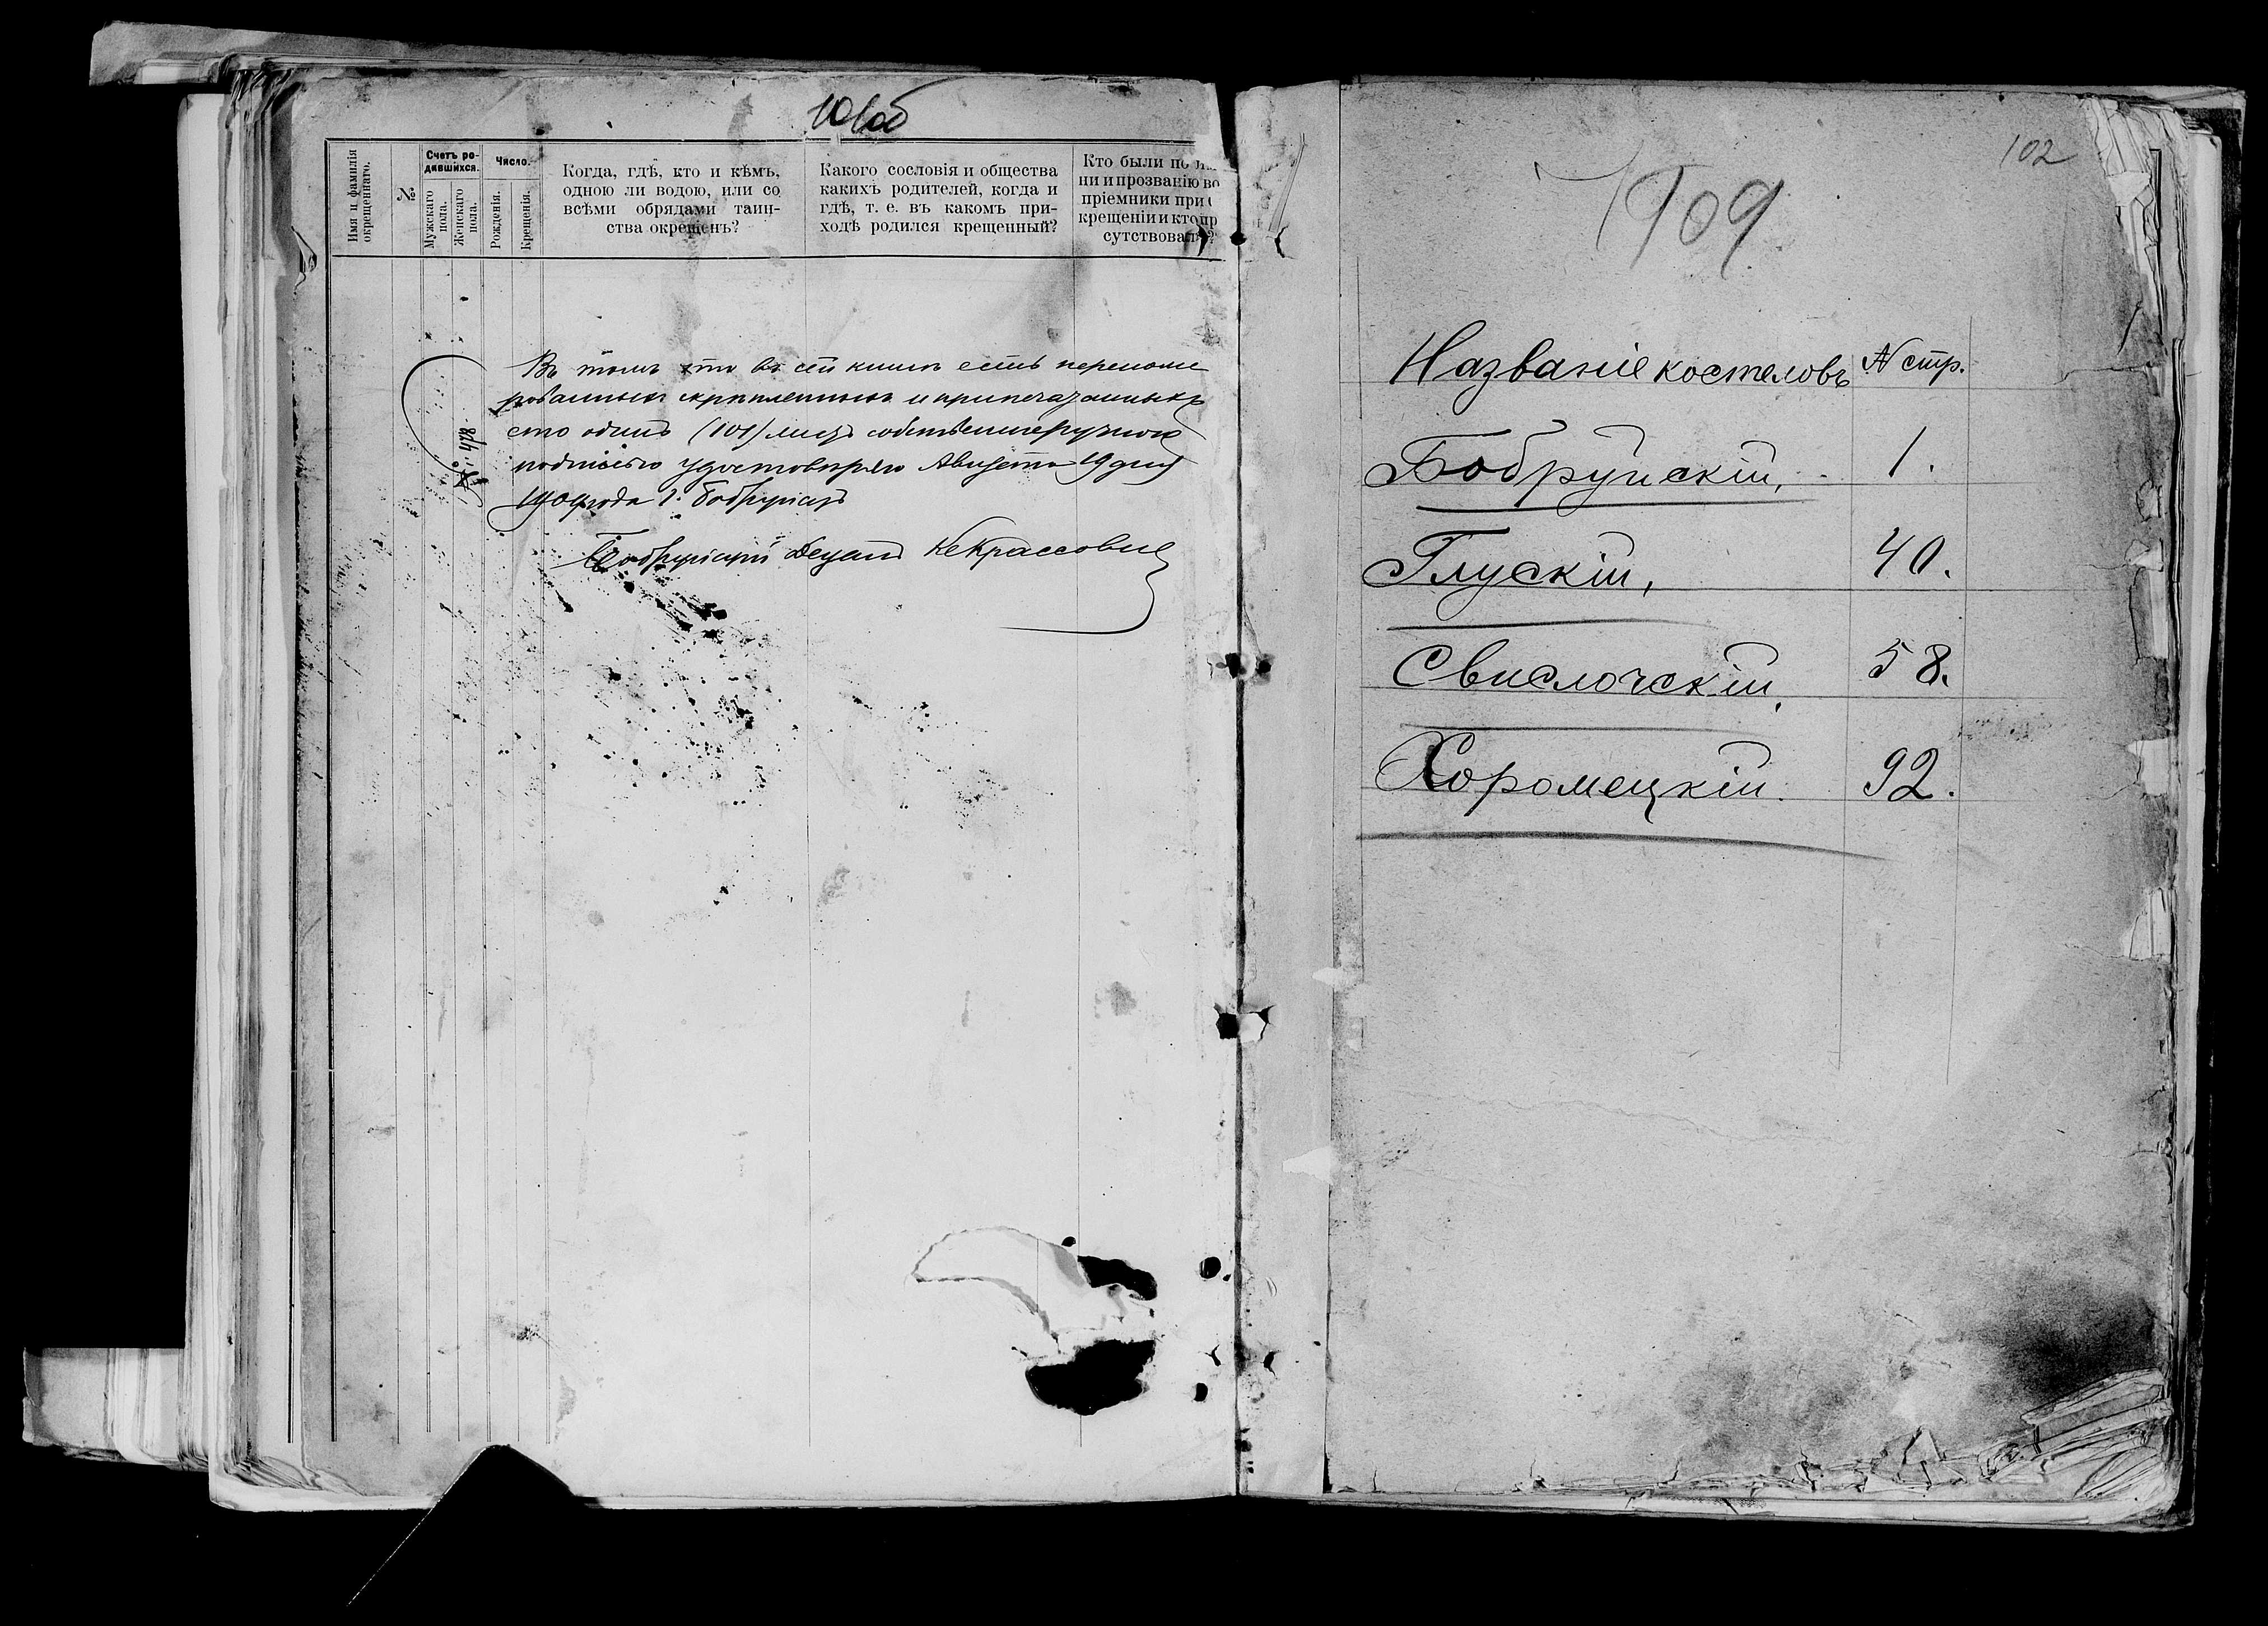 101об
Имя и фамилія
окрещеннаго.
№
Счетъ ро-
дившихся.
Мужскаго
пола.
Женскаго
пола.
Число.
Рожденія.
Крещенія.
Когда, гдѣ, кто и кѣмъ,
одною ли водою, или со
всѣми обрядами таин-
ства окрещенъ?
Какого сословія и общества
какихъ родителей, когда и
гдѣ, т. е. въ какомъ при-
ходѣ родился крещенный?
Кто были по и
ни и прозванію во
пріемники при
крещеніи и кто пр
сутствовалъ?
№ 478
Въ томъ что въ сей книгѣ есть перенуме
рованныхъ скрѣпленныхъ и припечатанныхъ
сто одинъ (101) листъ собственноручною
подписью удостовѣряю Августа 19 дня
1909 года г. Бобруйскъ
Бобруйскій Деканъ
102
1909
Названіе костеловъ № стр.
Бобруйскій, 1.
Глускій, 40.
Свислочскій, 58.
Хоромецкій. 92.